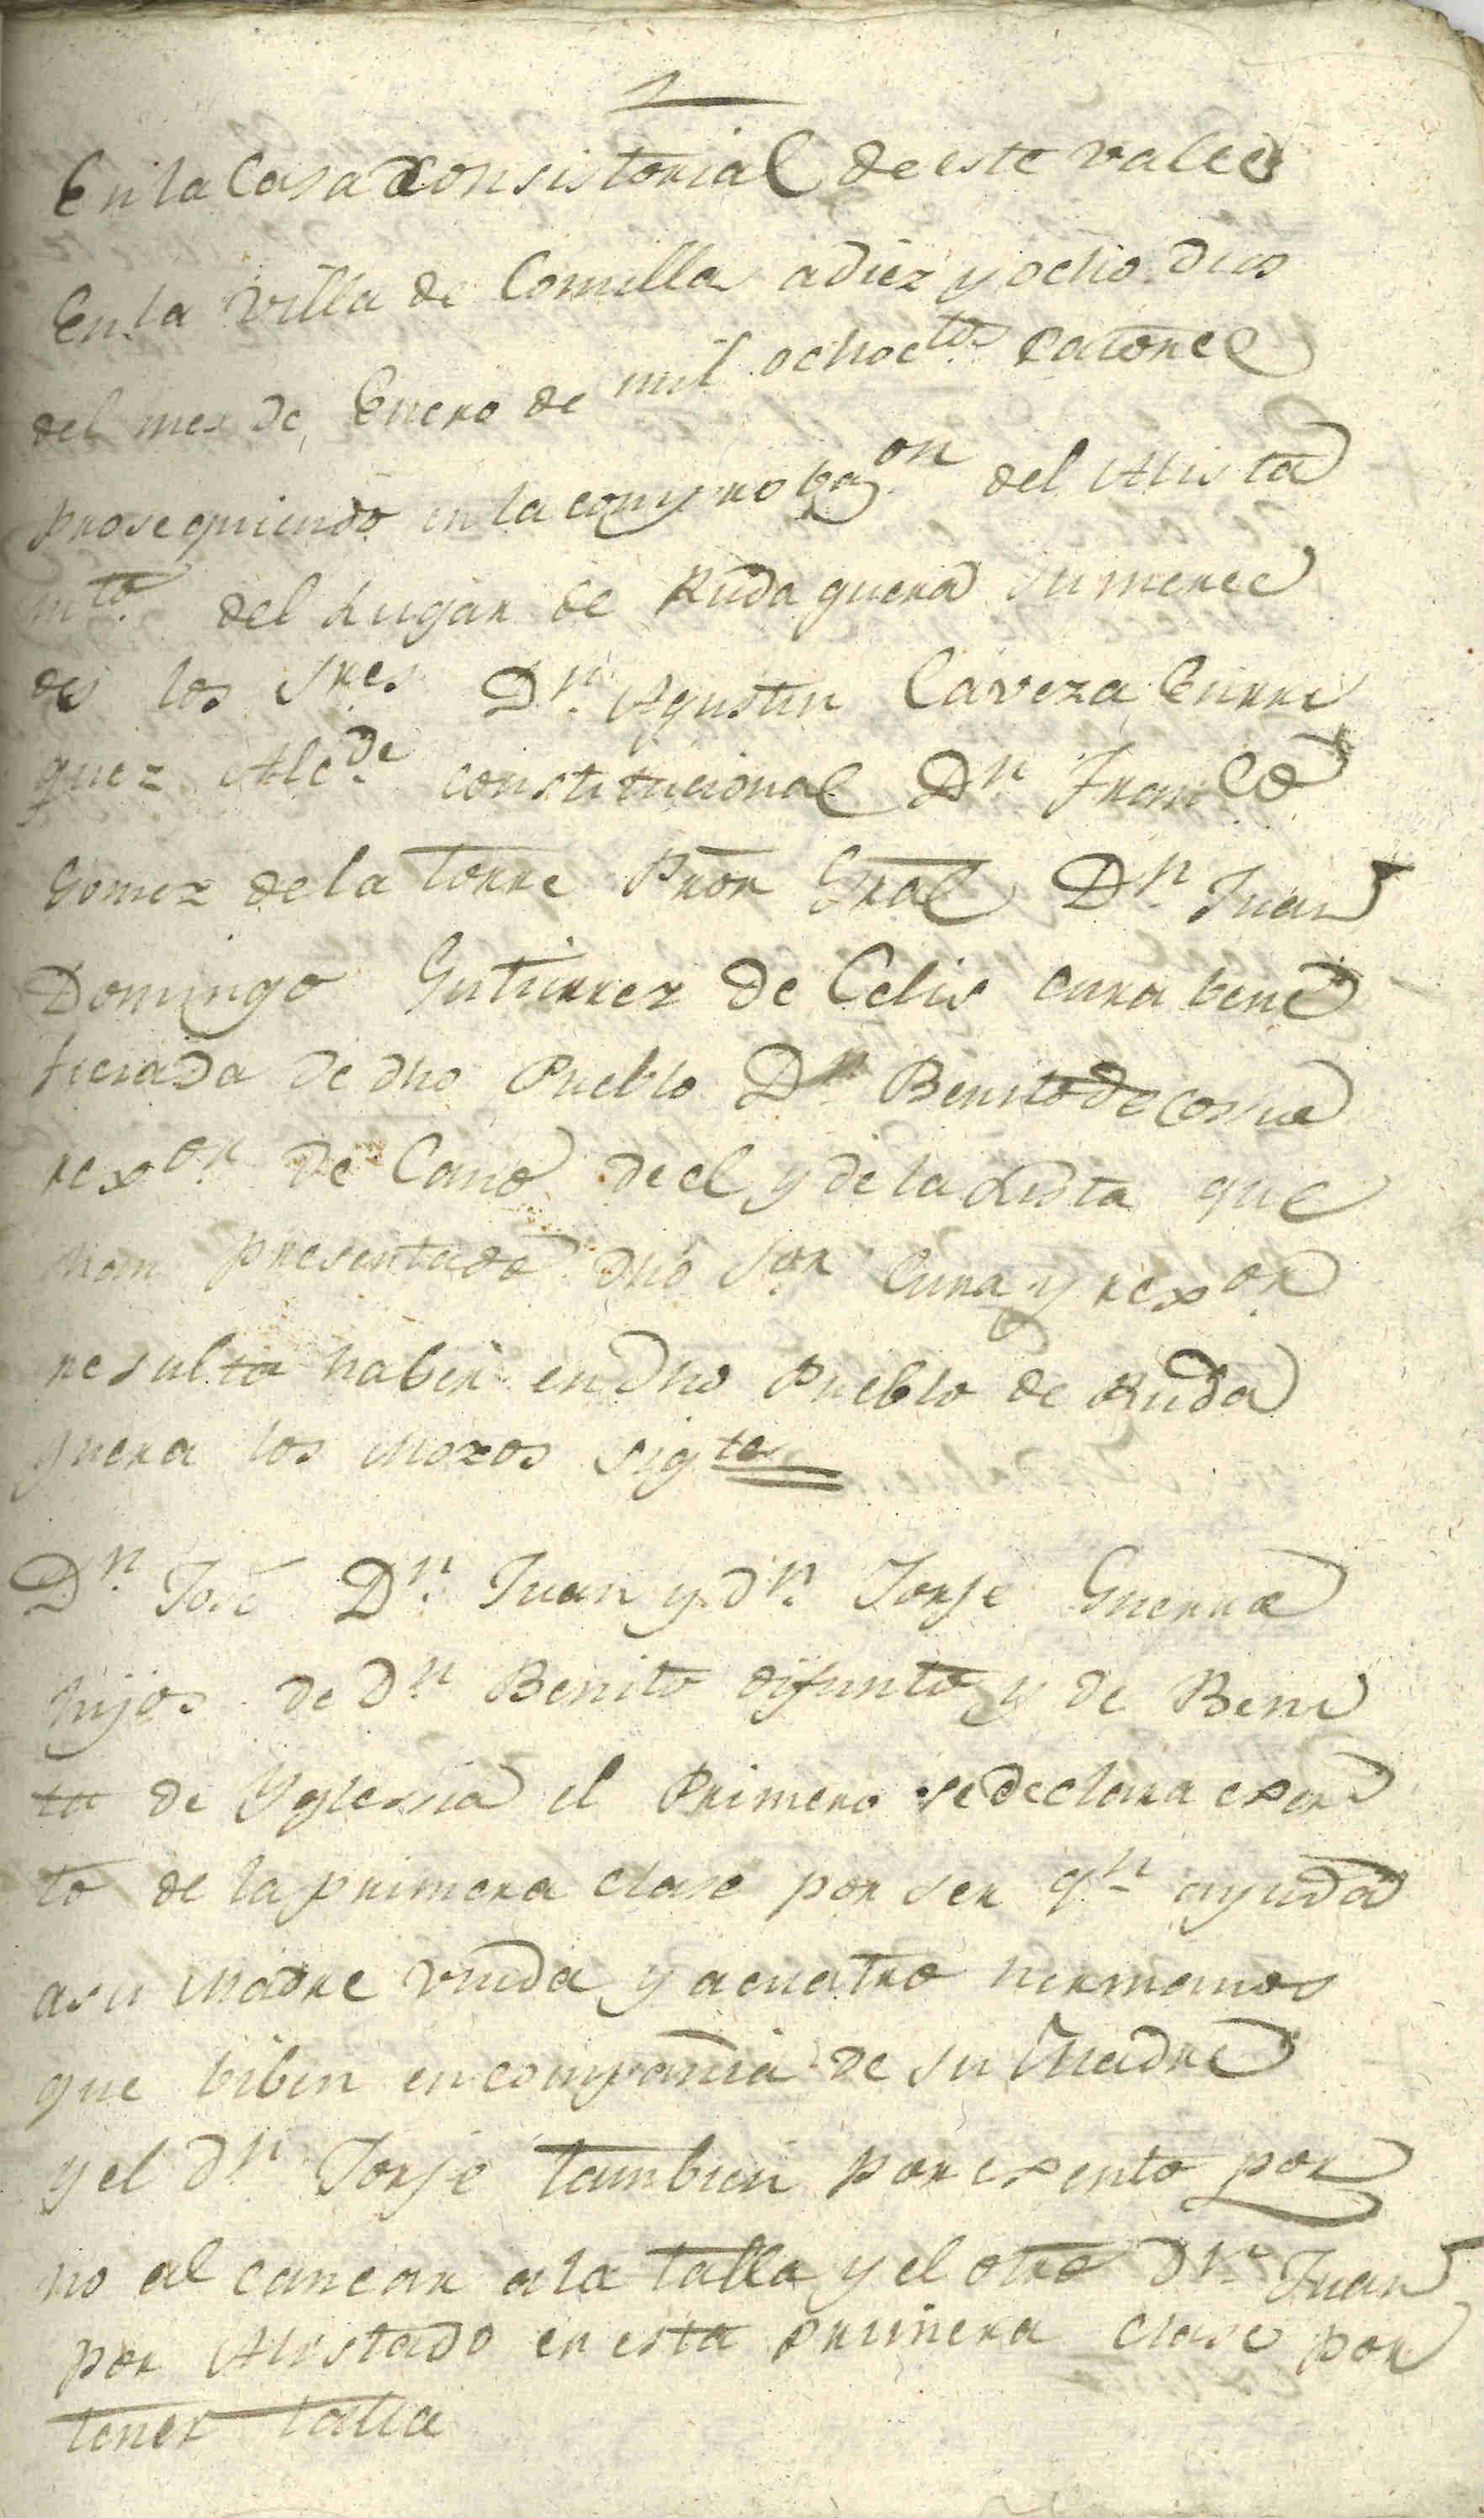 En la Casa Consistorial de este valle
En la Villa de Comillas a diez y ocho dias
del mes de Enero de mil ochoctos catorce
prosequiendo en la comprobaon del Alista
mto del Lugar de Rudaguera sumerce
des los Sres Dn Agustin Caveza Enrri
quez Alcde constitucional Dn Franco
Gomez de la Torre Pror Gral Dn Juan
Domingo Gutierrez de Celis cura bene
ficiada de dho Pueblo Dn Benito de Cossio
rexor de Cano de el y de la Lista que
han presentado dho Sor Cura y rexor
resulta haber en dho Pueblo de Ruda
guera los Mozos sigtes
Dn José Dn Juan y dn Jorje Guerra
hijos de dn Benito difunto y de Beni
ta de Yglesia el Primero se declara exen
to de la primera clase por ser qn ayuda
a su Madre viuda y a cuatro hermanos
que biben en compañia de su Madre
y el dn Jorje tambien por exento por
no alcanzar a la talla y el otro dn Juan
por Alistado en esta primera clase por
tener talla